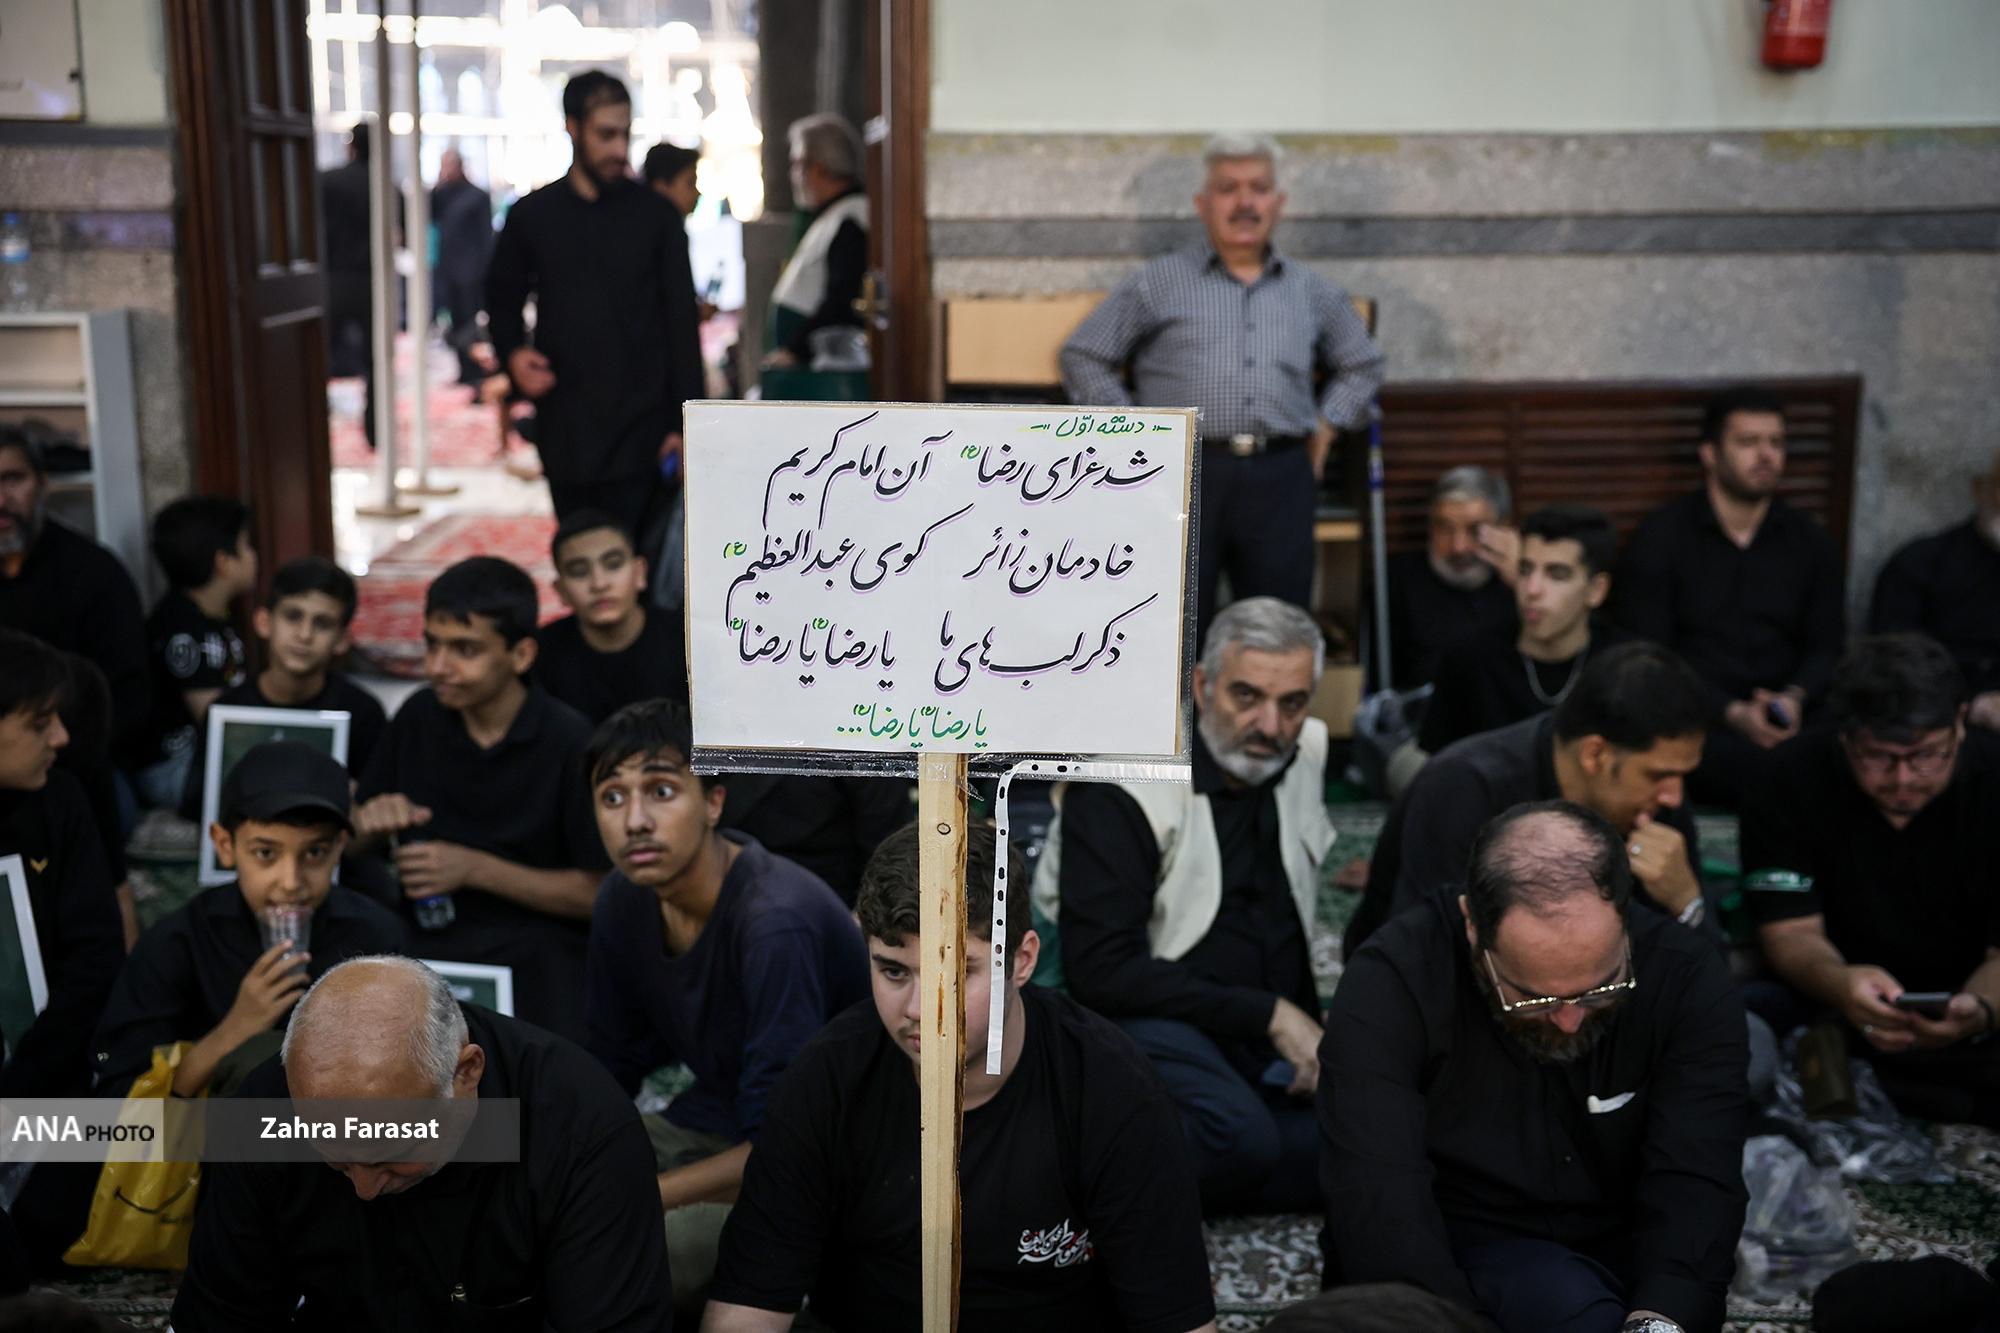 -- دسته اوّل --
شد عزای رضا(ع) آن امام کریم
خادمان زائر کوی عبدالعظیم(ع)
ذکر لب‌های ما یا رضا(ع) یا رضا(ع)
یا رضا(ع) یا رضا(ع)...
ANA PHOTO
Zahra Farasat